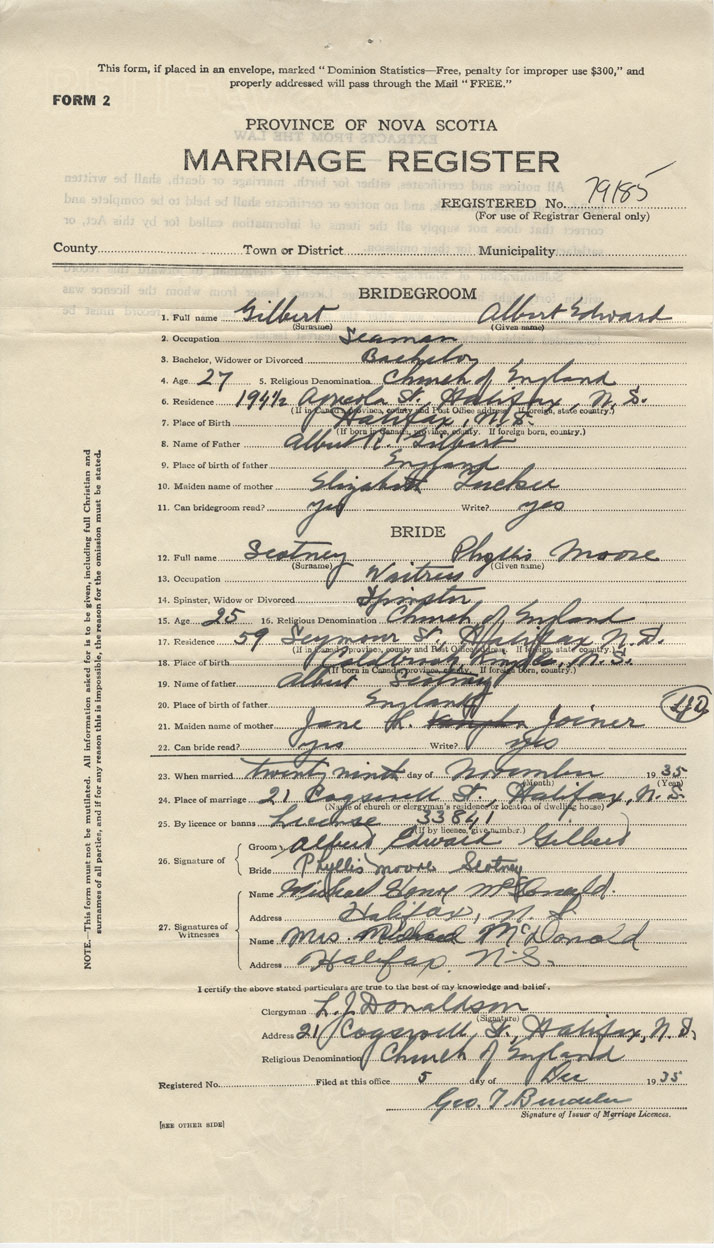 This form, if placed in an envelope, marked "Dominion Statistics—Free, penalty for improper use $300," and
properly addressed will pass through the Mail "FREE."
FORM 2
PROVINCE OF NOVA SCOTIA
MARRIAGE REGISTER
REGISTERED No. 79185
(For use of Registrar General only)
County Town or District Municipality
BRIDEGROOM
1. Full name Gilbert Albert Edward
(Surname) (Given name)
2. Occupation Seaman
3. Bachelor, Widower or Divorced Bachelor
4. Age 27 5. Religious Denomination Church of England
6. Residence 194½ Agricola St., Halifax, N.S.
(If in Canada, province, county and Post Office address. If foreign, state country.)
7. Place of Birth Halifax, N.S.
(If born in Canada, province, county. If foreign born, country.)
8. Name of Father Albert R. Gilbert
9. Place of birth of father England
10. Maiden name of mother Elizabeth Tucker
11. Can bridegroom read? yes Write? yes
BRIDE
12. Full name Scotney Phyllis Moore
(Surname) (Given name)
13. Occupation Waitress
14. Spinster, Widow or Divorced Spinster
15. Age 25 16. Religious Denomination Church of England
17. Residence 59 Seymour St., Halifax N.S.
(If in Canada, province, county and Post Office address. If foreign, state country.)
18. Place of birth Coldbrook Kings Co., N.S.
(If born in Canada, province, county. If foreign born, country.)
19. Name of father Albert Scotney
20. Place of birth of father England
40
21. Maiden name of mother Jane R. Joiner
22. Can bride read? yes Write? yes
23. When married twenty ninth day of November 1935
(Month) (Year)
24. Place of marriage 21 Cogswell St., Halifax, N.S.
(Name of church or clergyman's residence or location of dwelling house)
25. By licence or banns License 33841
(If by licence, give number.)
26. Signature of
Groom Alfred Edward Gilbert
Bride Phyllis Moore Scotney
27. Signatures of Witnesses
Name Michael Henry McDonald.
Address Halifax, N.S.
Name Mrs. Michael McDonald
Address Halifax. N.S.
I certify the above stated particulars are true to the best of my knowledge and belief.
Clergyman L. J. Donaldson
(Signature)
Address 21 Cogswell St, Halifax, N.S.
Religious Denomination Church of England
Registered No. Filed at this office 5 day of Dec 1935
Geo. T.
Signature of Issuer of Marriage Licences.
[SEE OTHER SIDE]
NOTE.—This form must not be mutilated. All information asked for is to be given, including full Christian and
surnames of all parties, and if for any reason this is impossible, the reason for the omission must be stated.